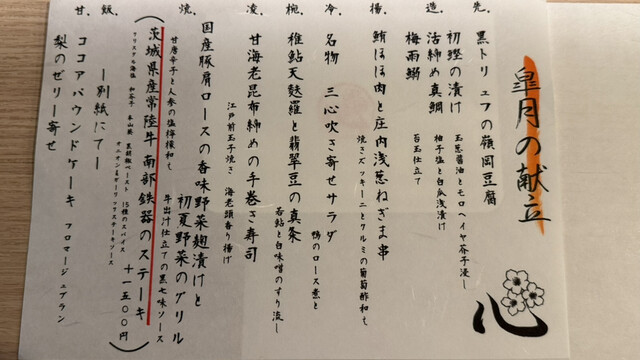 皐月の献立
心
先、
黒トリュフの嶺岡豆腐
造、
初鰹の漬け 玉葱醤油とモロヘイヤ芥子浸し
活締め真鯛 柚子塩と白瓜浅漬け
梅雨鰯 百玉仕立て
揚、
鮪ほほ肉と庄内浅葱ねぎま串
焼きズッキーニとクルミの葡萄酢和え
冷、
名物 三心吹き寄せサラダ
鴨のロース煮と
椀、
稚鮎天麩羅と翡翠豆の真薯
若鮎と白味噌のすり流し
凌、
甘海老昆布締めの手巻き寿司
江戸前玉子焼き 海老頭香り揚げ
焼、
国産豚肩ロースの香味野菜麹漬けと
初夏野菜のグリル
甘唐辛子と人参の塩檸檬和え
牛出汁仕立ての黒七味ソース
(茨城県産常陸牛 南部鉄器のステーキ
クリスタル海塩 和芥子 本山葵 黒胡椒ペースト 15種のスパイス
オニオン&ガーリックステーキソース
+一五〇〇円)
飯、
ー別紙にてー
甘、
ココアパウンドケーキ フロマージュブラン
梨のゼリー寄せ